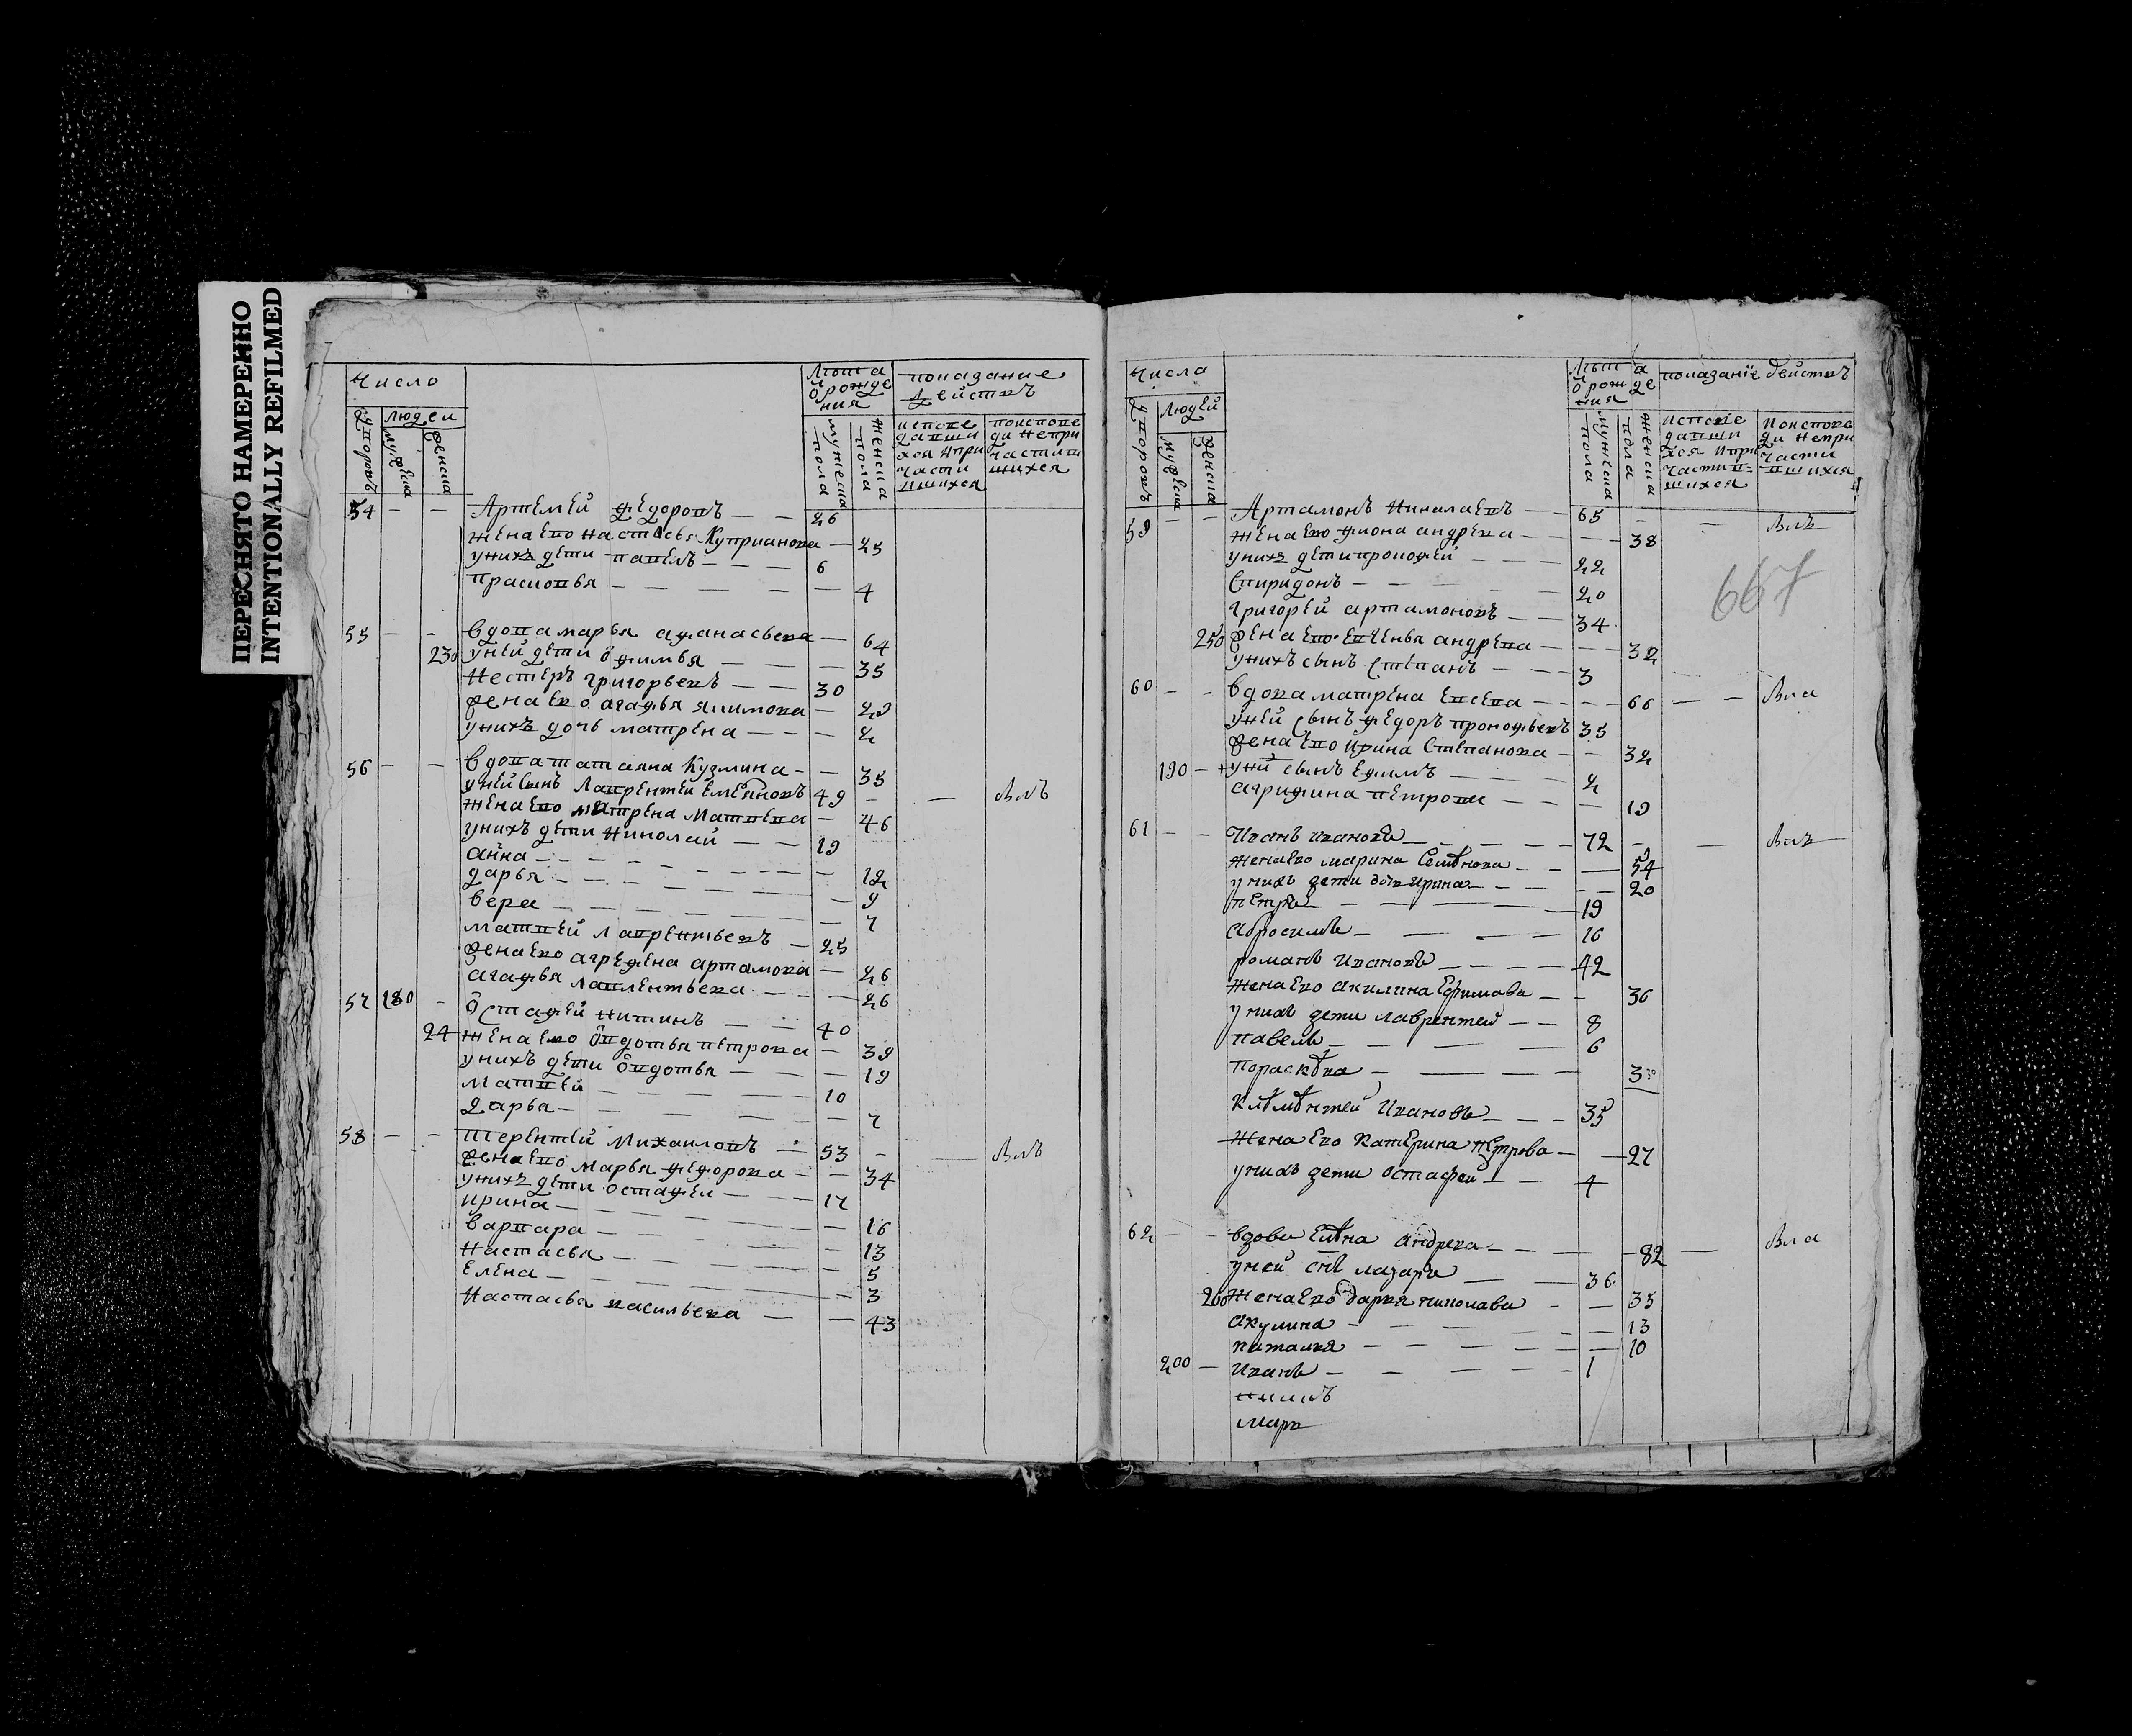 ПЕРЕСНЯТО НАМЕРЕННО
INTENTIONALLY REFILMED
Число
Людеи
дворовъ
мужеска
женска
Лѣта
ѿ рожде
ния
мужеска
пола
женска
пола
показание
действъ
исповe
давши
хся ипри
части
вшихся
поисповe
ди непри
частив
шихся
54 — — Артемей федоровъ — — 26
жена ево настасья Куприанова — 25
унихъ дети павелъ — — — 6
Прасковья — — — — 4
55 — — вдова марья афанасьева — 64
230 уней дети офимья — — — 35
Нестеръ григорьевъ — — 30
жена ево агафья якимова — 29
унихъ дочь матрена — — — 2
56 — — вдова татаяна Кузмина — — 35
уней сынъ Лаврентей Емеяновъ 49 — — Влъ
жена ево матрена Матвева — 46
унихъ дети николай — — 19
анна — — — — — 12
дарья — — — — — 9
вера — — — — — 7
матвей лаврентьевъ — 25
жена ево агрефена артамова — 26
агафья лавлентьева — — — 26
57 180 — Остафей никинъ — — 40
24 жена ево овдотья петрова — 39
унихъ дети овдотья — — — 19
матвей — — — — 10
Дарья — — — — — 7
58 — — терентей михаиловъ — 53 — — Влъ
жена ево марья федорова — — 34
унихъ дети остафеи — — — 17
ирина — — — — — 16
варвара — — — — 13
настасья — — — — 5
Елена — — — — 3
настасья васильева — — 43
Числа
Людей
дворовъ
мужеска
женска
Лѣта
ѿ рожде
ния
мужеска
пола
женска
пола
показанїе действъ
исповe
давши
хся ипри
частив-
шихся
Поиспове
ди непри
части
вшихся
667
59 — — Артамонъ Николаевъ — — 65 — — Влъ
жена ево фиона андрева — — — 38
унихъ дети прокофей — — — 22
Спиридонъ — — — — 20
григорей артамоновъ — — 34
250 жена ево евгенья андрева — — — 32
унихъ сынъ степанъ — — 3
60 — — вдова матрена евсева — — — 66 — — Вла
уней сынъ федоръ прокофьевъ 35
жена ево ирина Степанова — — 32
190 — уний сынъ ефимъ — — — 2
агрифина петрова — — — 19
61 — — Иванъ ивановъ — — — — 72 — — Влъ
жена ево марина Семѣнова — — — 54
унихъ дети дочь ирина — — — — 20
петръ — — — — 19
абросимъ — — — — 16
романъ Ивановъ — — — — 42
жена ево акилина Ефимова — — 36
унихъ дети лаврентей — — 8
павелъ — — — — 6
Пораскѣва — — — 3
Клѣмѣнтей Ивановъ — — — 35
Жена ево катерина Петрова — — 27
унихъ дети остафей — — 4
62 — — вдова Елѣна андрева — — — 82 — Вла
уней снъ лазарь — — 36
200 жена ево дарья николава — — 35
Акулина — — — — — 13
наталия — — — — — 10
200 — Иванъ — — — — 1
Марь